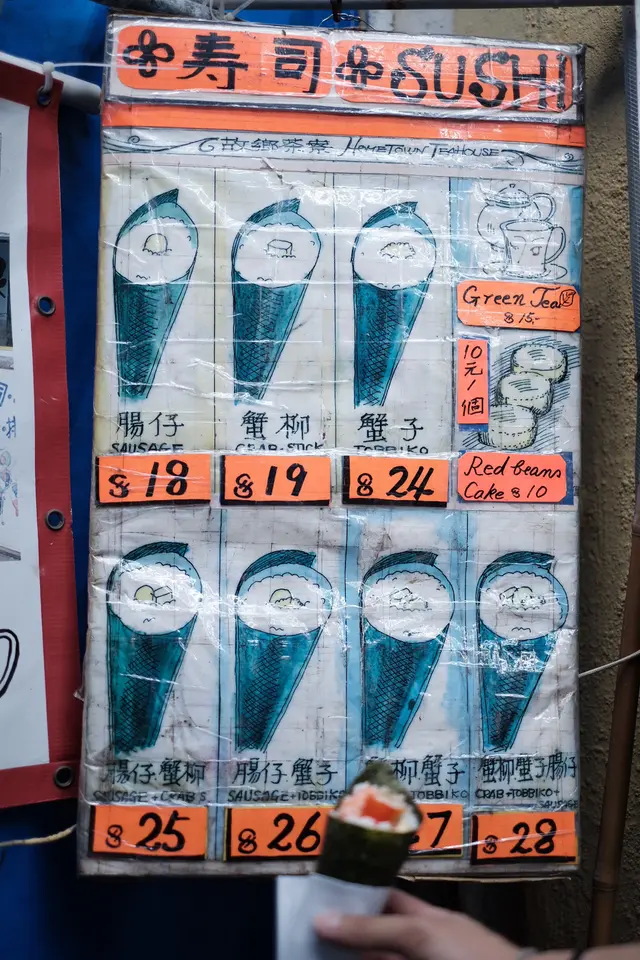 壽司 SUSHI
故鄉茶寮 HOMETOWN TEAHOUSE
Green Tea
$15.-
10元/個
Red beans
Cake $10
腸仔
SAUSAGE
$18
蟹柳
CRAB-STICK
$19
蟹子
TOBBIKO
$24
腸仔.蟹柳
SAUSAGE+CRAB'S
$25
腸仔.蟹子
SAUSAGE+TOBBIKO
$26
柳蟹子
TOBBIKO
7
蟹柳蟹子腸仔
CRAB+TOBBIKO+
SAUSAGE
$28